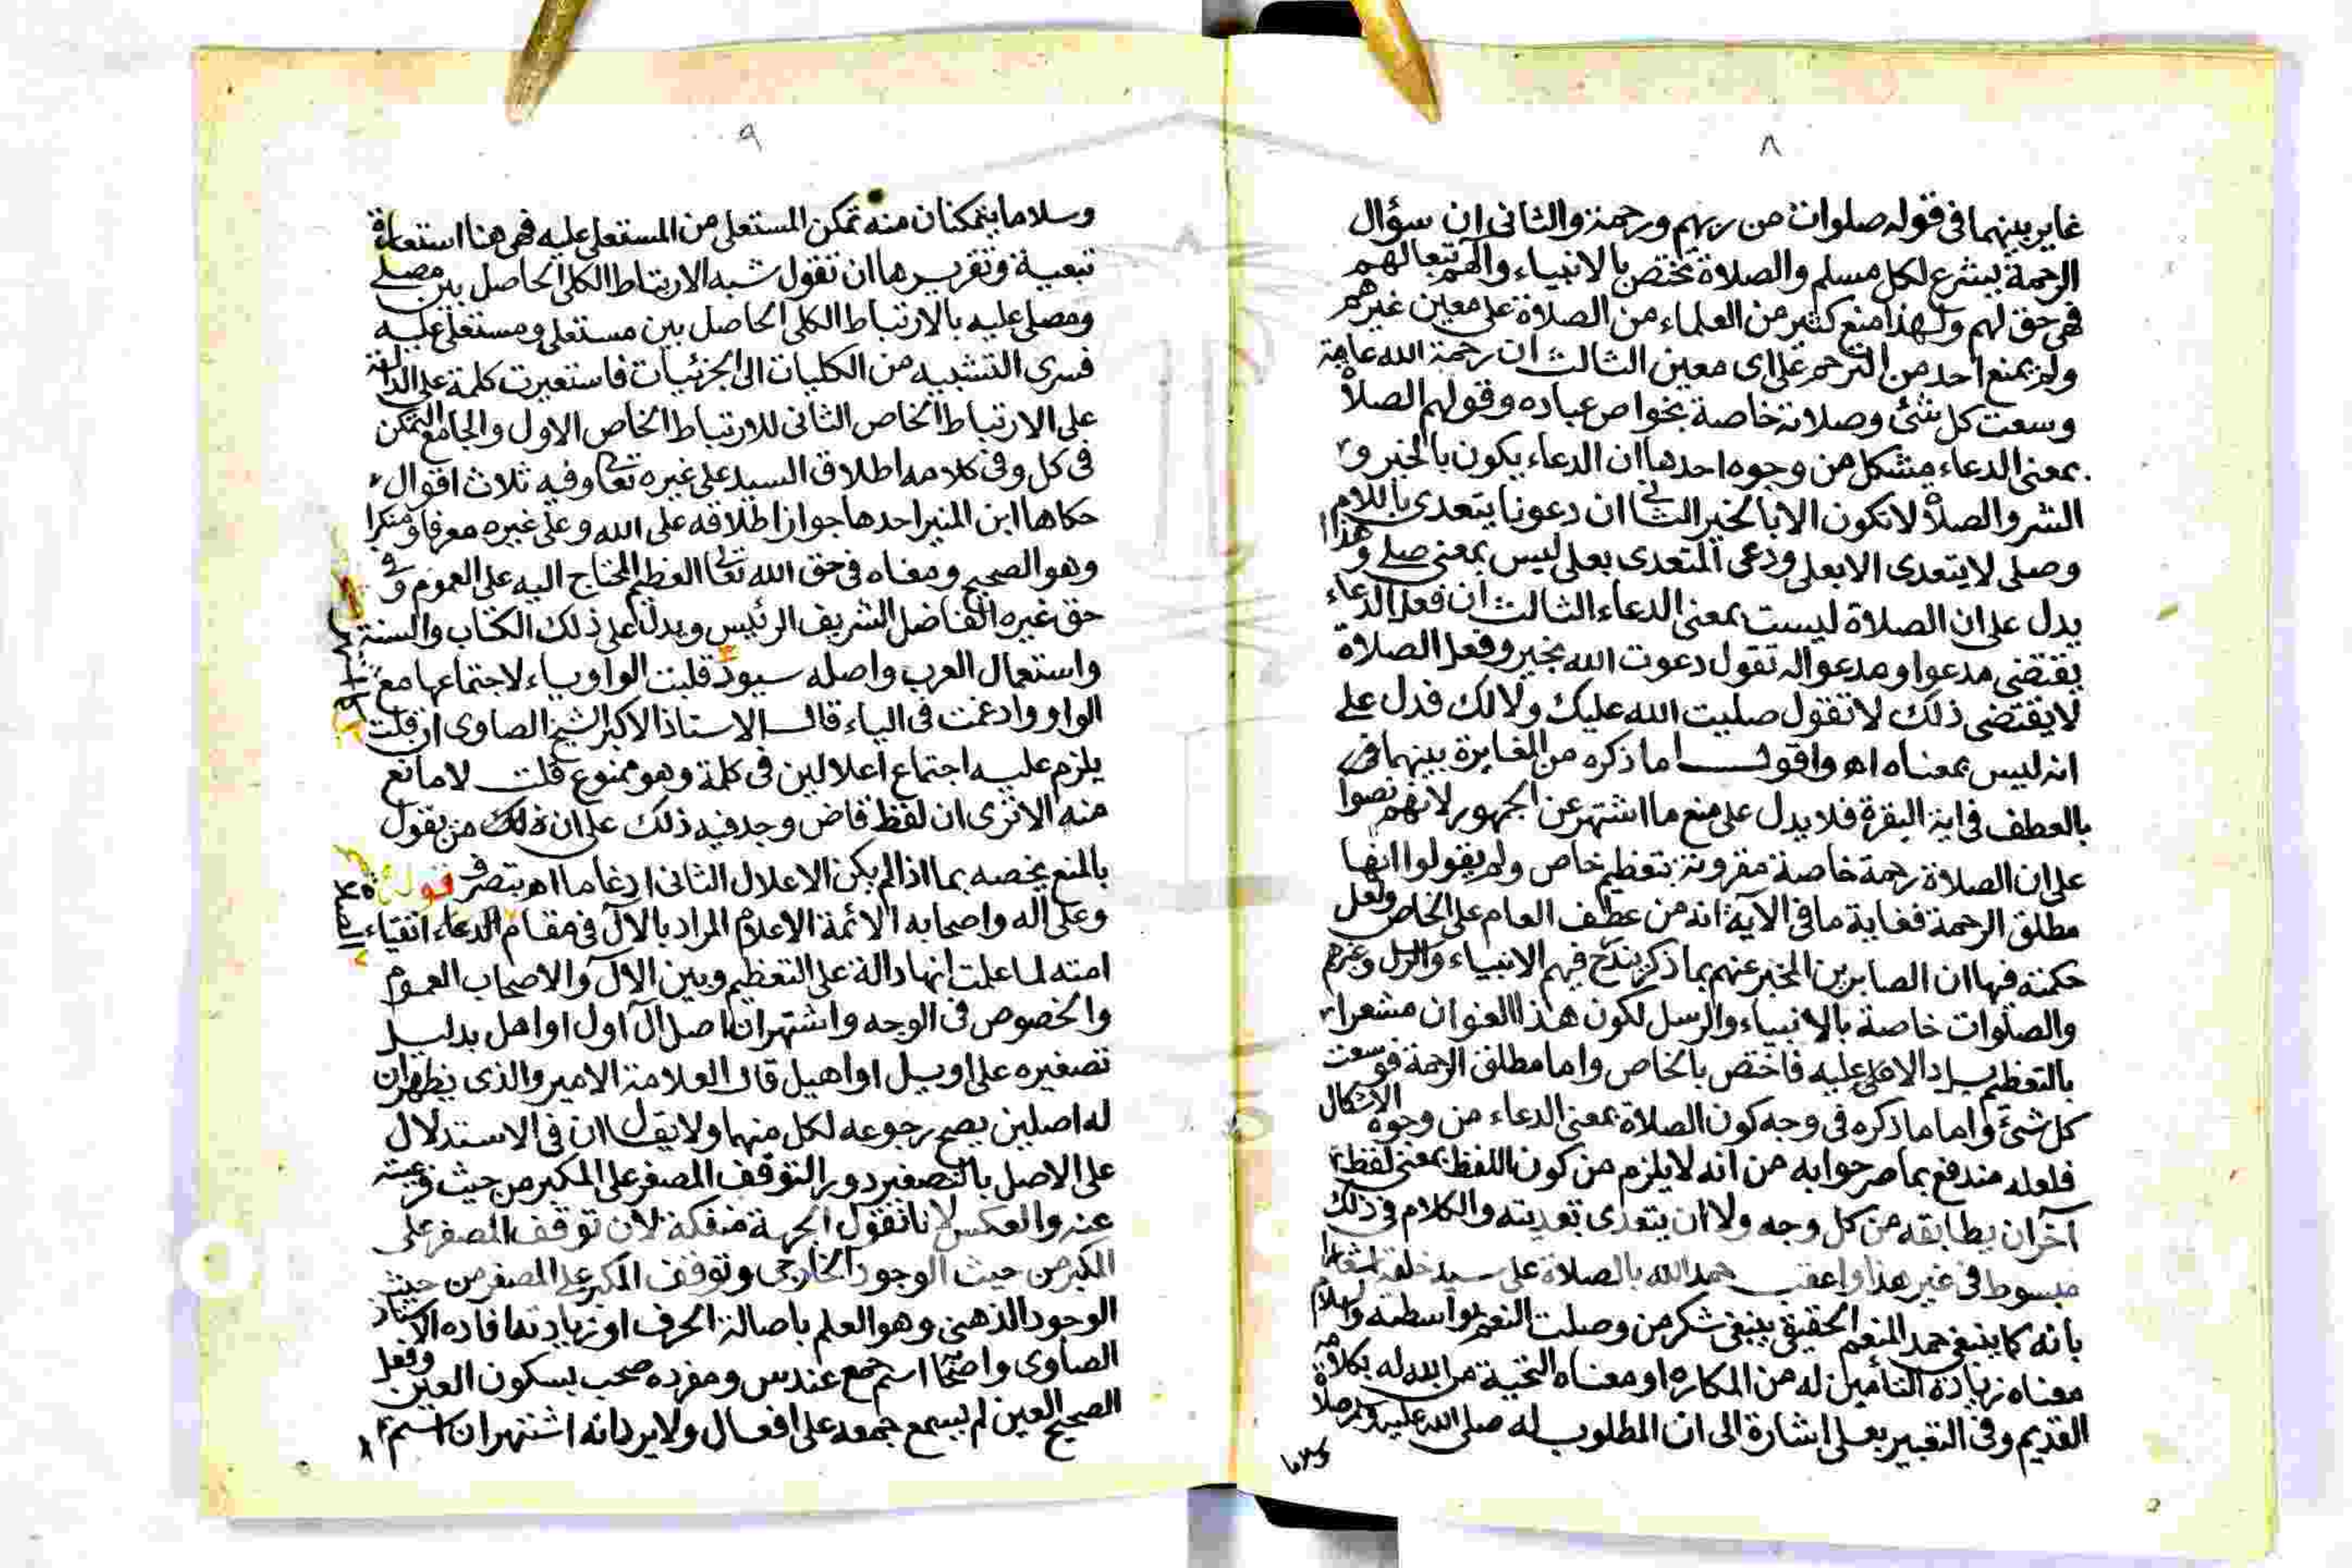 ٨
غاير بينهما فى قوله صلوات من ربهم ورحمة والثانى ان سؤال
الرحمة يشرع لكل مسلم والصلاة تختص بالانبياء وآلهم تبعا لهم
فهى حق لهم ولهذا منع كثير من العلماء من الصلاة على معين غيرهم
ولم يمنع احد من الترحم على اى معين الثالث ان رحمة الله عامة
وسعت كل شئ وصلاته خاصة بخواص عباده وقولهم الصلاة
بمعنى الدعاء مشكل من وجوه احدها ان الدعاء يكون بالخير و
الشر والصلاة لا تكون الا بالخير الثانى ان دعوت يتعدى باللام
وصلى لا يتعدى الا بعلى ودعى المتعدى بعلى ليس بمعنى صلى وهذا
يدل على ان الصلاة ليست بمعنى الدعاء الثالث ان فعل الدعاء
يقتضى مدعوا ومدعوا له تقول دعوت الله بخير وفعل الصلاة
لا يقتضى ذلك لا تقول صليت الله عليك ولا لك فدل على
انه ليس بمعناه اه واقول اما ذكره من المغايرة بينهما فى
بالعطف فى اية البقرة فلا يدل على منع ما اشتهر عن الجمهور لانهم نصوا
على ان الصلاة رحمة خاصة مقرونة بتعظيم خاص ولم يقولوا انها
مطلق الرحمة فغاية ما فى الآية انه من عطف العام على الخاص ولعل
حكمته فيها ان الصابرين المخبر عنهم بما ذكر يندرج فيهم الانبياء والرسل وغيرهم
والصلوات خاصة بالانبياء والرسل لكون هذا العنوان مشعرا
بالتعظيم عليه فاختص بالخاص واما مطلق الرحمة فوسعت
كل شئ واما ما ذكره فى وجه كون الصلاة بمعنى الدعاء من وجوه الاشكال
فلعله مندفع بما مر جوابه من انه لا يلزم من كون اللفظ بمعنى لفظ
آخر ان يطابقه من كل وجه ولا ان يتعدى تعديته والكلام فى ذلك
مبسوط فى غير هذا واعقب حمد الله بالصلاة على سيد خلقه
بانه كما ينبغى حمد المنعم الحقيقى ينبغى شكر من وصلت النعم بواسطته والسلام
معناه زيادة التأمين له من المكاره او معناه التحية من الله له بكلامه
القديم وفى التعبير بعلى اشارة الى ان المطلوب له صلى الله عليه وسلم صلاة
وسلاما
٩
وسلاما يتمكنان منه تمكن المستعلى من المستعلى عليه فهى هنا استعارة
تبعية وتقريرها ان تقول شبه الارتباط الكلى الحاصل بين مصلى
ومصلى عليه بالارتباط الكلى الحاصل بين مستعلى ومستعلى عليه
فسرى التشبيه من الكليات الى الجزئيات فاستعيرت كلمة على الدالة
على الارتباط الخاص الثانى للارتباط الخاص الاول والجامع التمكن
فى كل وفى كلامه اطلاق السيد على غيره تعالى وفيه ثلاث اقوال
حكاها ابن المنير احدها جواز اطلاقه على الله وعلى غيره معرفا ومنكرا
وهو الصحيح ومعناه فى حق الله تعالى العظيم المحتاج اليه على العموم وفى
حق غيره الفاضل الشريف الرئيس ويدل على ذلك الكتاب والسنة
واستعمال العرب واصله سيود قلبت الواو ياء لاجتماعها مع
الواو وادغمت فى الياء قال الاستاذ الاكبر الشيخ الصاوى ان قلت
يلزم عليه اجتماع اعلالين فى كلمة وهو ممنوع قلت لا مانع
منه الا ترى ان لفظ قاض وجد فيه ذلك على ان ذلك من يقول
بالمنع يخصه بما اذا لم يكن الاعلال الثانى ادغاما اه بتصرف قوله
وعلى اله واصحابه الائمة الاعلام المراد بالآل فى مقام الدعاء اتقياء
امته لما علمت انها دالة على التعظيم وبين الآل والاصحاب العموم
والخصوص فى الوجه واشتهر ان اصل آل اول او اهل بدليل
تصغيره على اويل او اهيل قال العلامة الامير والذى يظهر ان
له اصلين يصح رجوعه لكل منهما ولا يقال ان فى الاستدلال
على الاصل بالتصغير دور التوقف المصغر على المكبر من حيث فرعيته
عنه والعكس لانا نقول الجهة منفكة لان توقف المصغر على
المكبر من حيث الوجود الخارجى وتوقف المكبر على المصغر من حيث
الوجود الذهنى وهو العلم باصالة الحرف او زيادته افاده الاستاذ
الصاوى واصحاب اسم جمع عند س ومفرده صحب بسكون العين وفعل
الصحيح العين لم يسمع جمعه على افعال ولا يرد انه اشتهر ان اسم